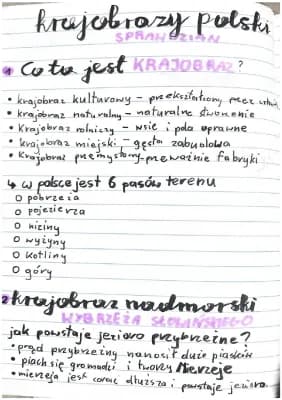 krajobrazy polski
SPRAWDZIAN
1 Co to jest KRAJOBRAZ?
• krajobraz kulturowy – przekształcony przez
• krajobraz naturalny – naturalne stworzenie
• Krajobraz rolniczy – wsie i pola uprawne
• krajobraz miejski – gęsta zabudowa
• Krajobraz przemysłowy – przeważnie fabryki
↳ w polsce jest 6 pasów terenu
O pobrzeża
O pojezierza
O niziny
O wyżyny
O kotliny
O góry
2 krajobraz nadmorski
WYBRZEŻA SŁOWIŃSKIEGO
jak powstaje jezioro przybrzeżne?
• prąd przybrzeżny nanosił duże piasków
• piach się gromadzi i tworzy Mierzeje
• mierzeja jest coraz dłuższa i powstaje jezioro